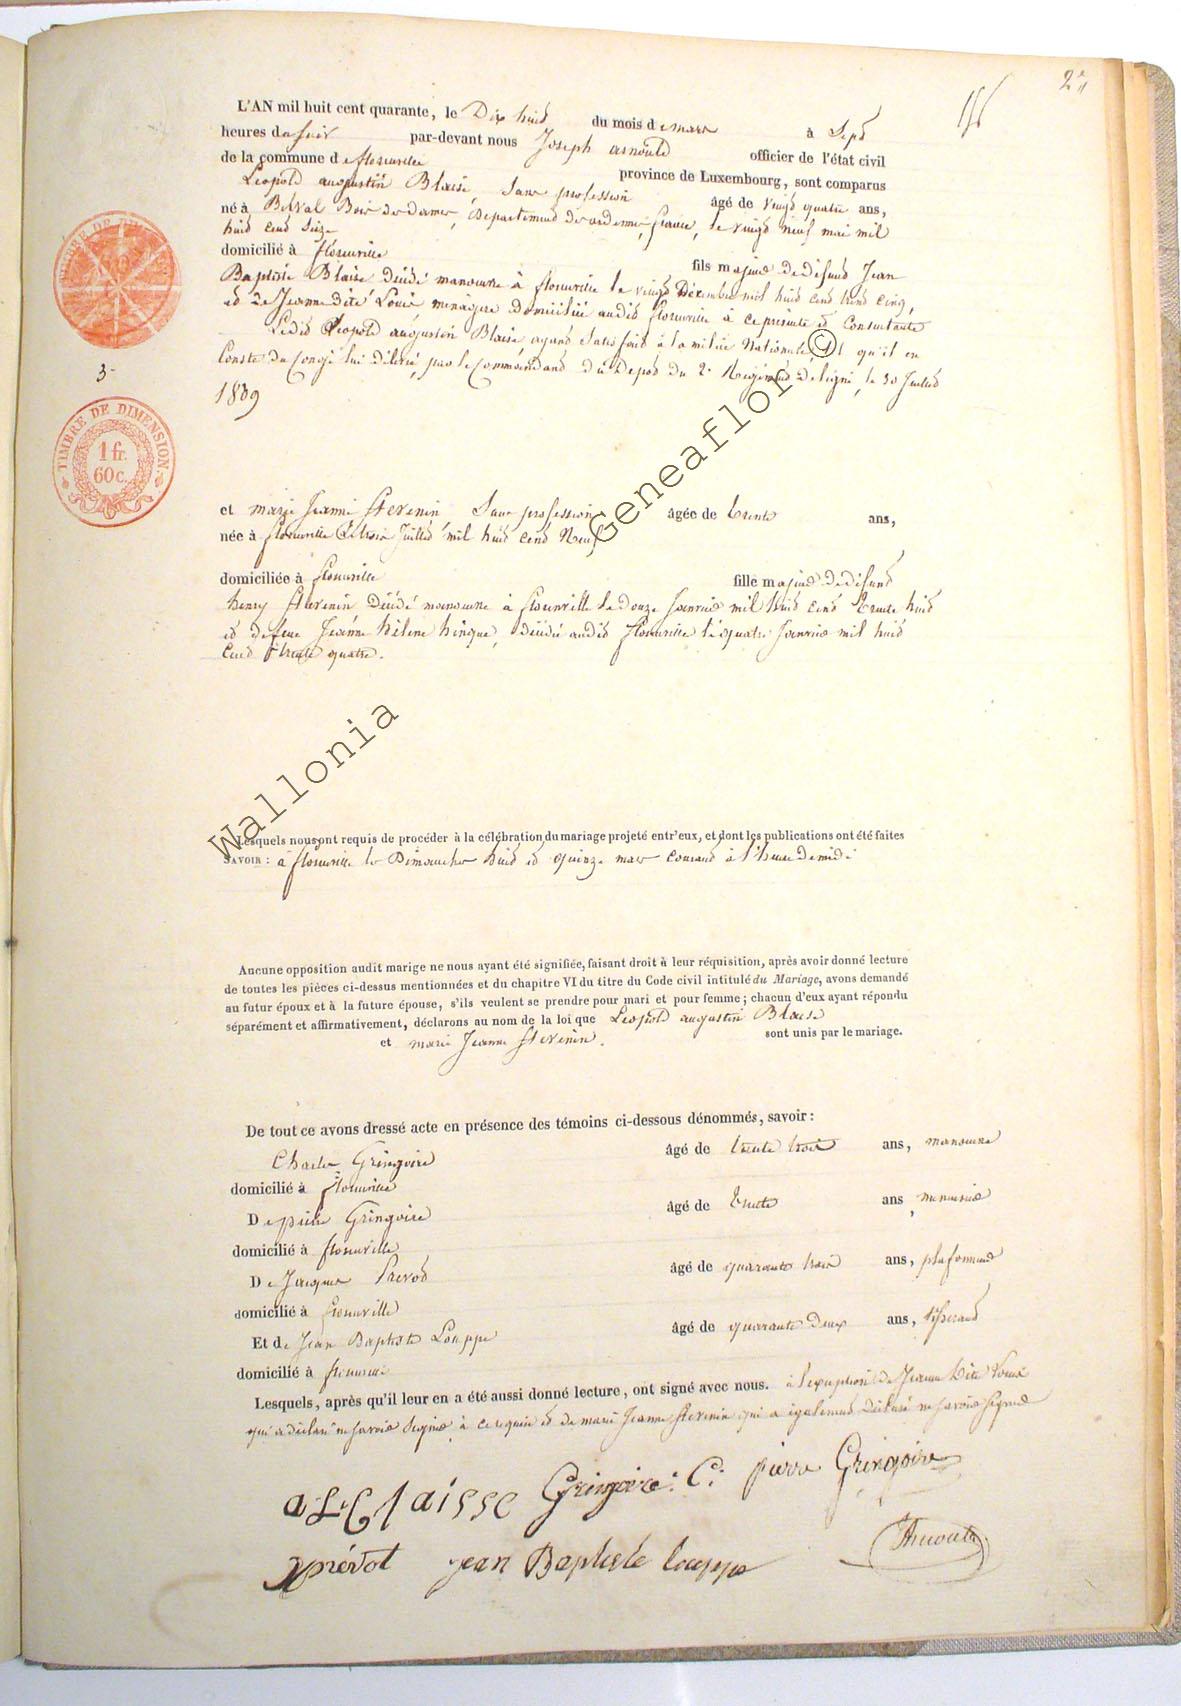 2
L'AN mil huit cent quarante, le Dix huit du mois de mars à Sept
heures du soir par-devant nous Joseph arnould officier de l'état civil
de la commune de florenville province de Luxembourg, sont comparus
Léopold augustin Blaise, Sans profession âgé de vingt quatre ans,
né à Belval Bois des dames, Département des ardennes, france, le vingt neuf mai mil
huit cent seize
domicilié à florenville fils majeur de défunt Jean
Baptiste Blaise décédé manoeuvre à florenville le vingt Décembre mil huit cent trente cinq,
et de Jeanne dite Louis ménagère domiciliée audit florenville à ce présente et consentante
Ledit Léopold augustin Blaise, ayant satisfait à la milice Nationale qu'il en
conste du congé lui délivré, par le commandant du Dépôt du 2e Régiment de ligne, le 30 Juillet
1839
TIMBRE DE DIMENSION.
1 fr.
60 c.
et marie Jeanne Stevenin Sans profession âgée de trente ans,
née à florenville le trois Juillet mil huit cent Neuf
domiciliée à florenville fille majeure de défunt
henry Stevenin Décédé manoeuvre à florenville le douze Janvier mil huit cent trente huit
et defeue Jeanne hélène hingue, décédée audit florenville le quatre Janvier mil huit
cent trente quatre.
Lesquels nous ont requis de procéder à la célébration du mariage projeté entr'eux, et dont les publications ont été faites
SAVOIR : à florenville les Dimanches huit et quinze mars courant à l'heure de midi
Aucune opposition audit marige ne nous ayant été signifiée, faisant droit à leur réquisition, après avoir donné lecture
de toutes les pièces ci-dessus mentionnées et du chapitre VI du titre du Code civil intitulé du Mariage, avons demandé
au futur époux et à la future épouse, s'ils veulent se prendre pour mari et pour femme ; chacun d'eux ayant répondu
séparément et affirmativement, déclarons au nom de la loi que Léopold augustin Blaise
et marie Jeanne Stevenin. sont unis par le mariage.
De tout ce avons dressé acte en présence des témoins ci-dessous dénommés, savoir :
Charles Gringoire âgé de trente trois ans, manoeuvre
domicilié à florenville
De pierre Gringoire âgé de trente ans, menuisier
domicilié à florenville
De Jacques Prevot âgé de quarante trois ans, plafonneur
domicilié à florenville
Et de Jean Baptiste Louppe âgé de quarante deux ans, tisserand
domicilié à florenville
Lesquels, après qu'il leur en a été aussi donné lecture, ont signé avec nous. à l'exception de Jeanne dite Louis
qui a déclaré ne savoir signer à ce requise et de marie Jeanne Stevenin qui a également déclaré ne savoir signer
Gringoire : C : pierre Gringoire
prévot jean Baptiste louppe Arnould
Wallonia Geneaflor ©